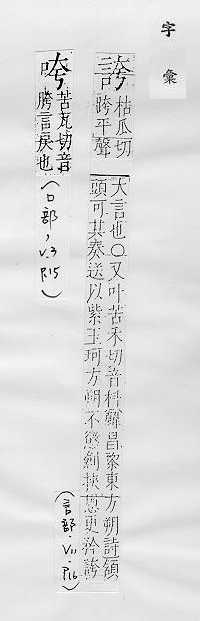 字彙
誇
枯瓜切
跨平聲
大言也○又叶苦禾切音科韓昌黎東方朔詩頷
頭可其奏送以紫玉珂方朔不懲創挾恩更矜誇
(言部, V.11, P.16)
咵
苦瓦切音
胯言戾也
(口部, V.3 P.15)